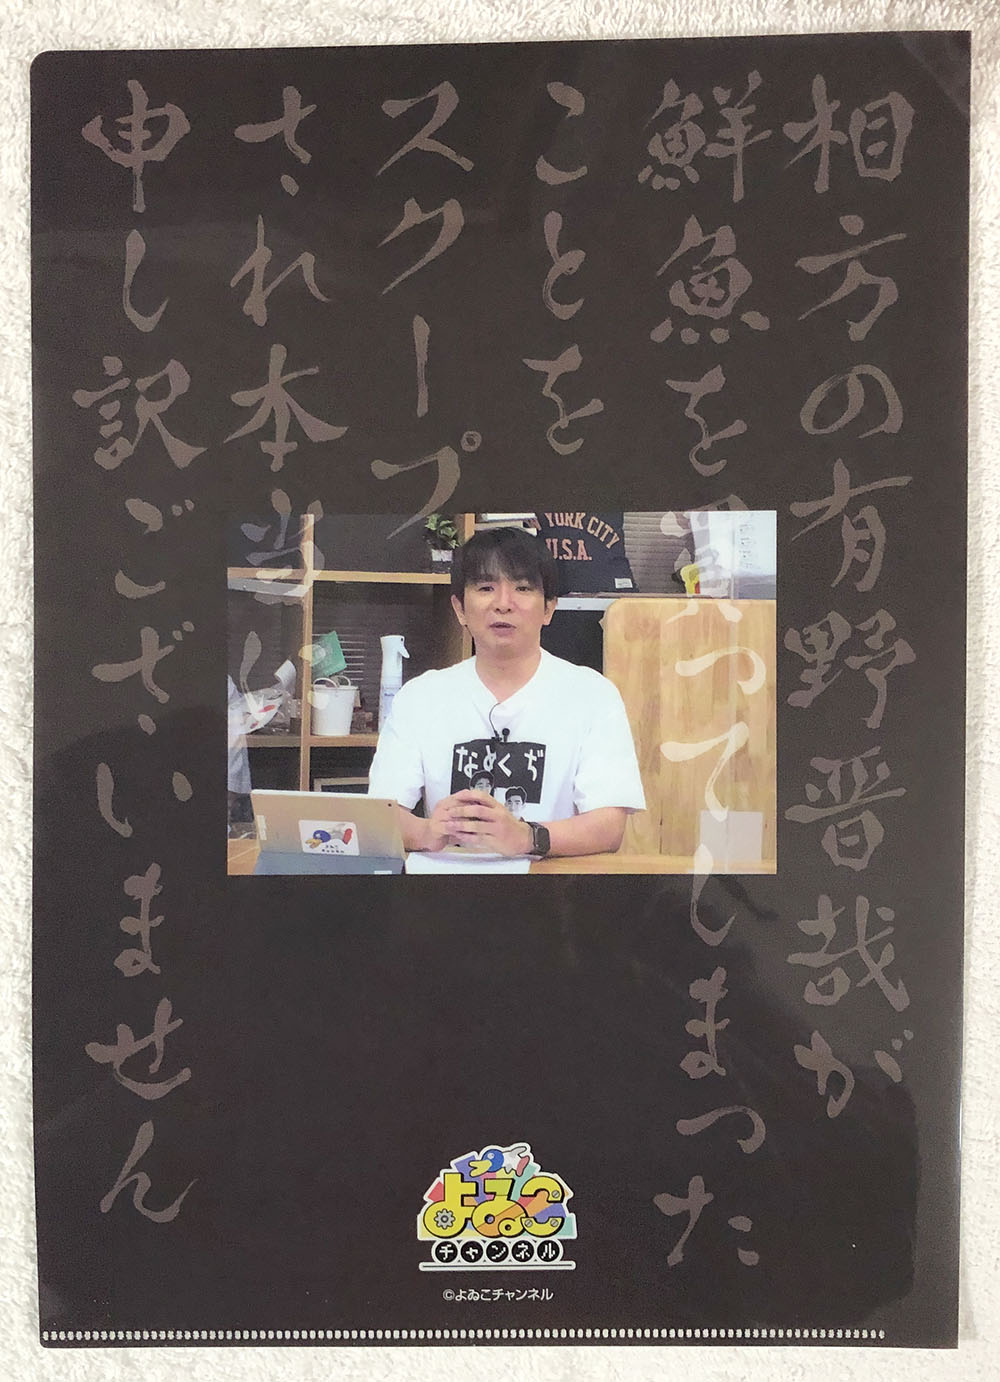 相方の有野晋哉が
鮮魚を買ってしまった
ことを
スクープ
され本当に
申し訳ございません
NEW YORK CITY
U.S.A.
なめくぢ
よゐこ
チャンネル
よゐこ
チャンネル
©よゐこチャンネル